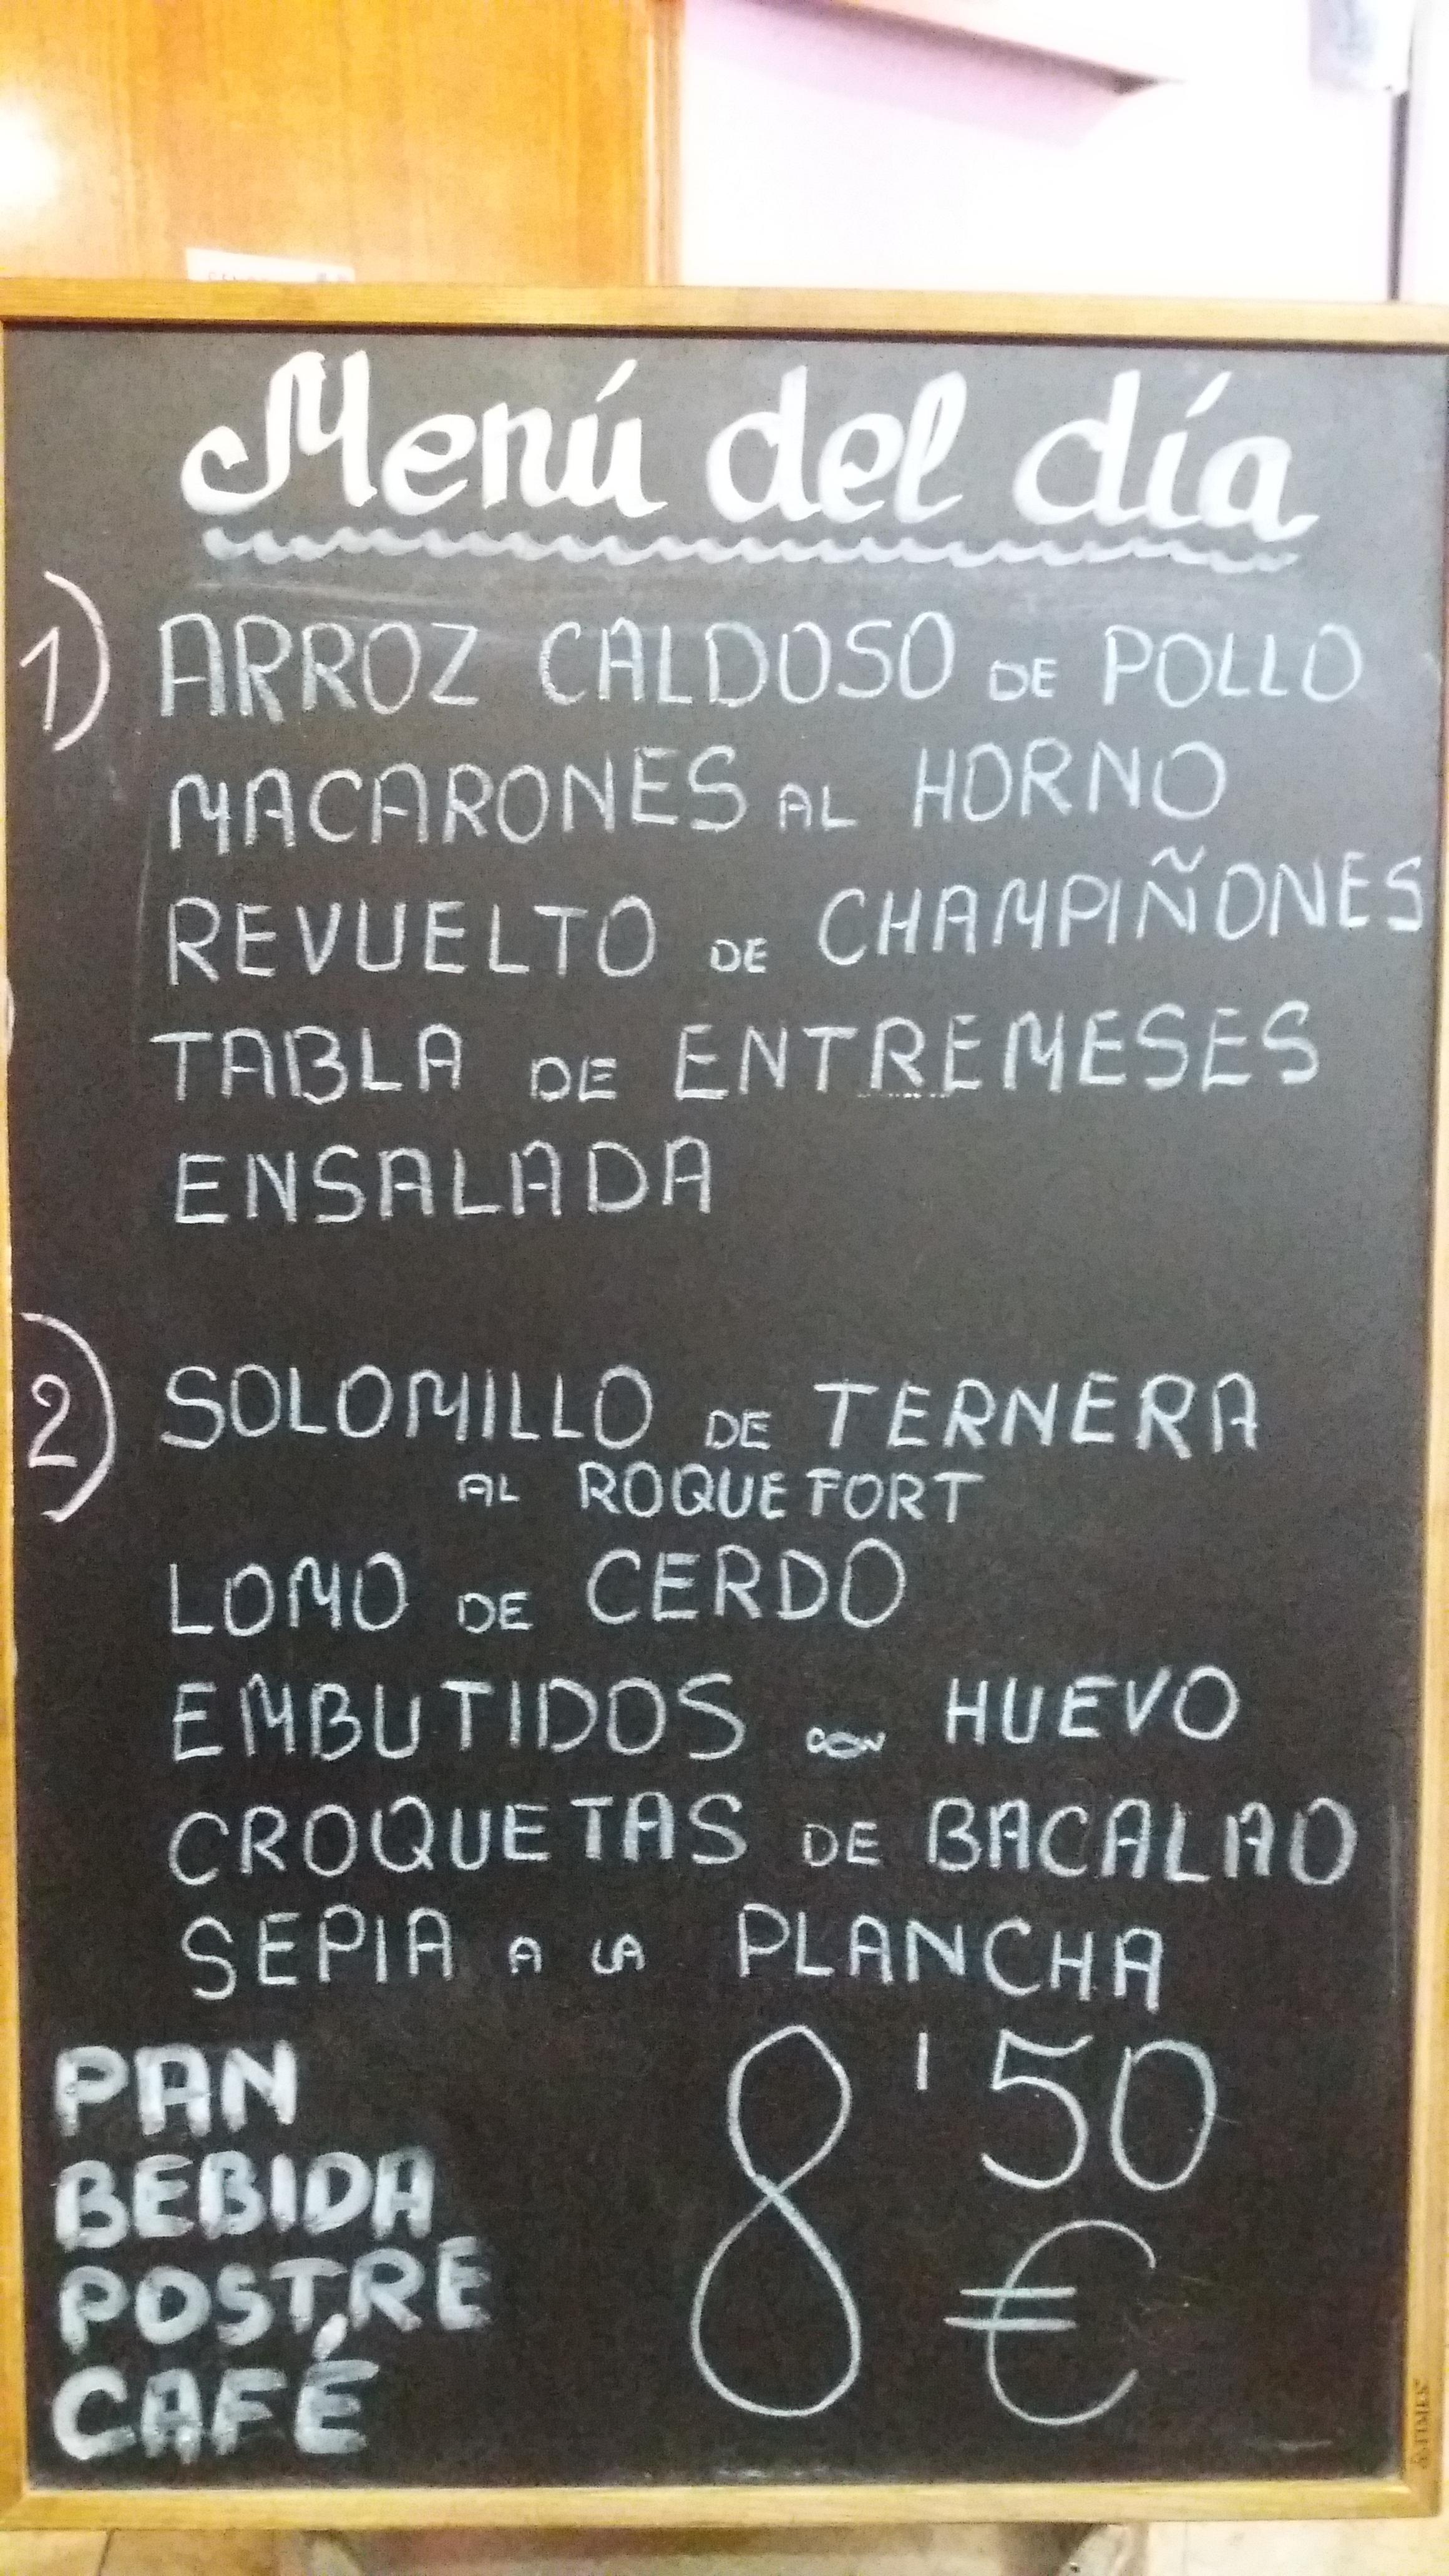 Menú del día
1) ARROZ CALDOSO DE POLLO
MACARONES AL HORNO
REVUELTO DE CHAMPIÑONES
TABLA DE ENTREMESES
ENSALADA
2) SOLOMILLO DE TERNERA
AL ROQUEFORT
LOMO DE CERDO
EMBUTIDOS CON HUEVO
CROQUETAS DE BACALAO
SEPIA A LA PLANCHA
PAN
BEBIDA
POSTRE
CAFÉ
8'50
€